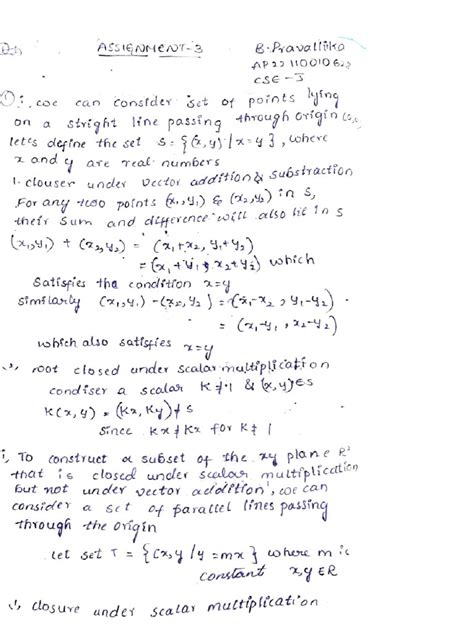 ASSIGNMENT-3 B. Pravallika
CSE - J
① i. we can consider set of points lying
on a stright line passing through origin
let's define the set S = {(x,y) | x=y}, where
x and y are real numbers
1. clouser under vector addition & substraction
For any two points (x₁,y₁) & (x₂,y₂) in S,
their sum and difference will also lie in S
(x₁,y₁) + (x₂,y₂) = (x₁+x₂, y₁+y₂)
= (x₁+y₁, x₂+y₂) which
Satisfies the condition x=y
similarly (x₁,y₁) - (x₂,y₂) = (x₁-x₂, y₁-y₂)
= (x₁-y₁, x₂-y₂)
which also satisfies x=y
root closed under scalar multiplication
condiser a scalar K≠1 & (x,y)∈S
K(x,y) = (Kx, Ky) ∉ S
Since Kx ≠ Kx for K ≠ 1
i, To construct a subset of the xy plane R²
that is closed under scalar multiplication
but not under vector addition', we can
consider a set of parallel lines passing
through the origin
let set T = {(x,y / y=mx} where m is
constant x,y∈R
closure under scalar multiplication